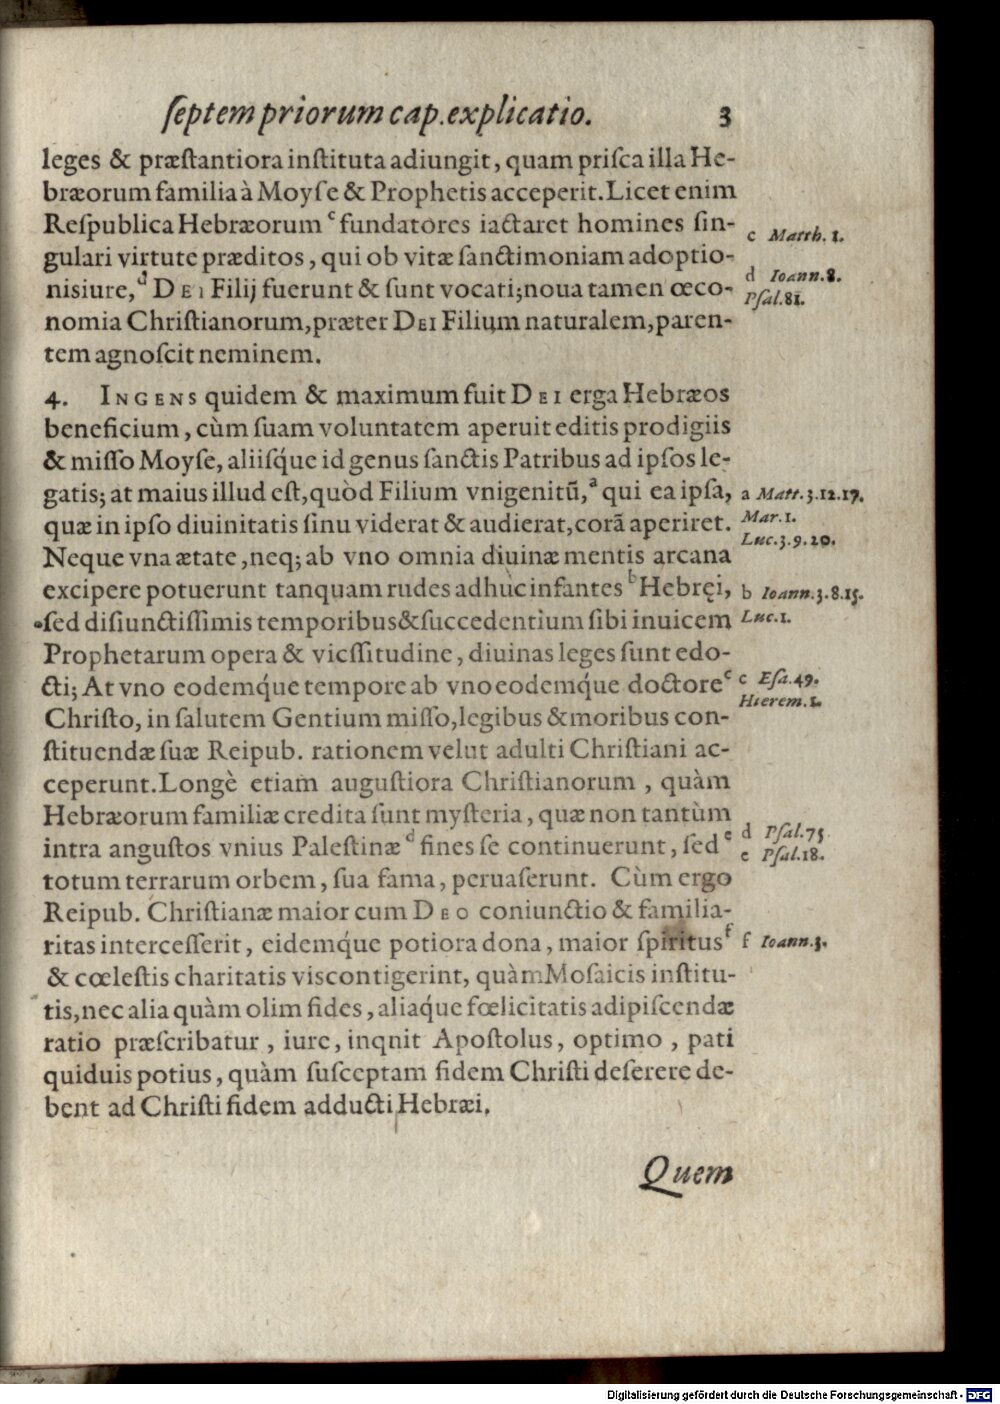 ſeptem priorum cap. explicatio. 3
leges & præſtantiora inſtituta adiungit, quam priſca illa He-
bræorum familia à Moyſe & Prophetis acceperit. Licet enim
Reſpublica Hebræorum c fundatores iactaret homines ſin-
c Matth. 1.
gulari virtute præditos, qui ob vitæ ſanctimoniam adoptio-
d Ioann. 8.
nis iure, d DEI Filij fuerunt & ſunt vocati; noua tamen œco-
Pſal. 81.
nomia Chriſtianorum, præter DEI Filium naturalem, paren-
tem agnoſcit neminem.
4. INGENS quidem & maximum fuit DEI erga Hebræos
beneficium, cùm ſuam voluntatem aperuit editis prodigiis
& miſſo Moyſe, aliiſq́ue id genus ſanctis Patribus ad ipſos le-
gatis; at maius illud eſt, quòd Filium vnigenitũ, a qui ea ipſa,
a Matt. 3. 12. 17.
quæ in ipſo diuinitatis ſinu viderat & audierat, corã aperiret.
Mar. 1.
Luc. 3. 9. 20.
Neque vna ætate, neq; ab vno omnia diuinæ mentis arcana
excipere potuerunt tanquam rudes adhuc infantes b Hebręi,
b Ioann. 3. 8. 15.
ſed diſiunctiſſimis temporibus & ſuccedentium ſibi inuicem
Luc. 1.
Prophetarum opera & viciſſitudine, diuinas leges ſunt edo-
cti; At vno eodemq́ue tempore ab vno eodemq́ue doctore c
c Eſa. 49.
Hierem. 1.
Chriſto, in ſalutem Gentium miſſo, legibus & moribus con-
ſtituendæ ſuæ Reipub. rationem velut adulti Chriſtiani ac-
ceperunt. Longè etiam auguſtiora Chriſtianorum, quàm
Hebræorum familiæ credita ſunt myſteria, quæ non tantùm
d Pſal. 75
intra anguſtos vnius Paleſtinæ d fines ſe continuerunt, ſed e
e Pſal. 18.
totum terrarum orbem, ſua fama, peruaſerunt. Cùm ergo
Reipub. Chriſtianæ maior cum DEO coniunctio & familia-
ritas interceſſerit, eidemq́ue potiora dona, maior ſpiritus f
f Ioann. 3.
& cœleſtis charitatis vis contigerint, quàm Moſaicis inſtitu-
tis, nec alia quàm olim fides, aliaq́ue fœlicitatis adipiſcendæ
ratio præſcribatur, iure, inqnit Apoſtolus, optimo, pati
quiduis potius, quàm ſuſceptam fidem Chriſti deſerere de-
bent ad Chriſti fidem adducti Hebræi.
Quem
Digitalisierung gefördert durch die Deutsche Forschungsgemeinschaft - DFG